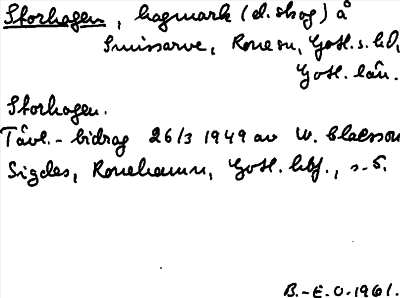 Storhagen, hagmark (d. skog) å
Smissarve, Rone sn, Gotl. s. hd,
Gotl. län.
Storhagen.
Tävl.-bidrag 26/3 1949 av W. Claesson
Sigdes, Ronehamn, Gotl. hbf., s. 5.
B.-E. O. 1961.